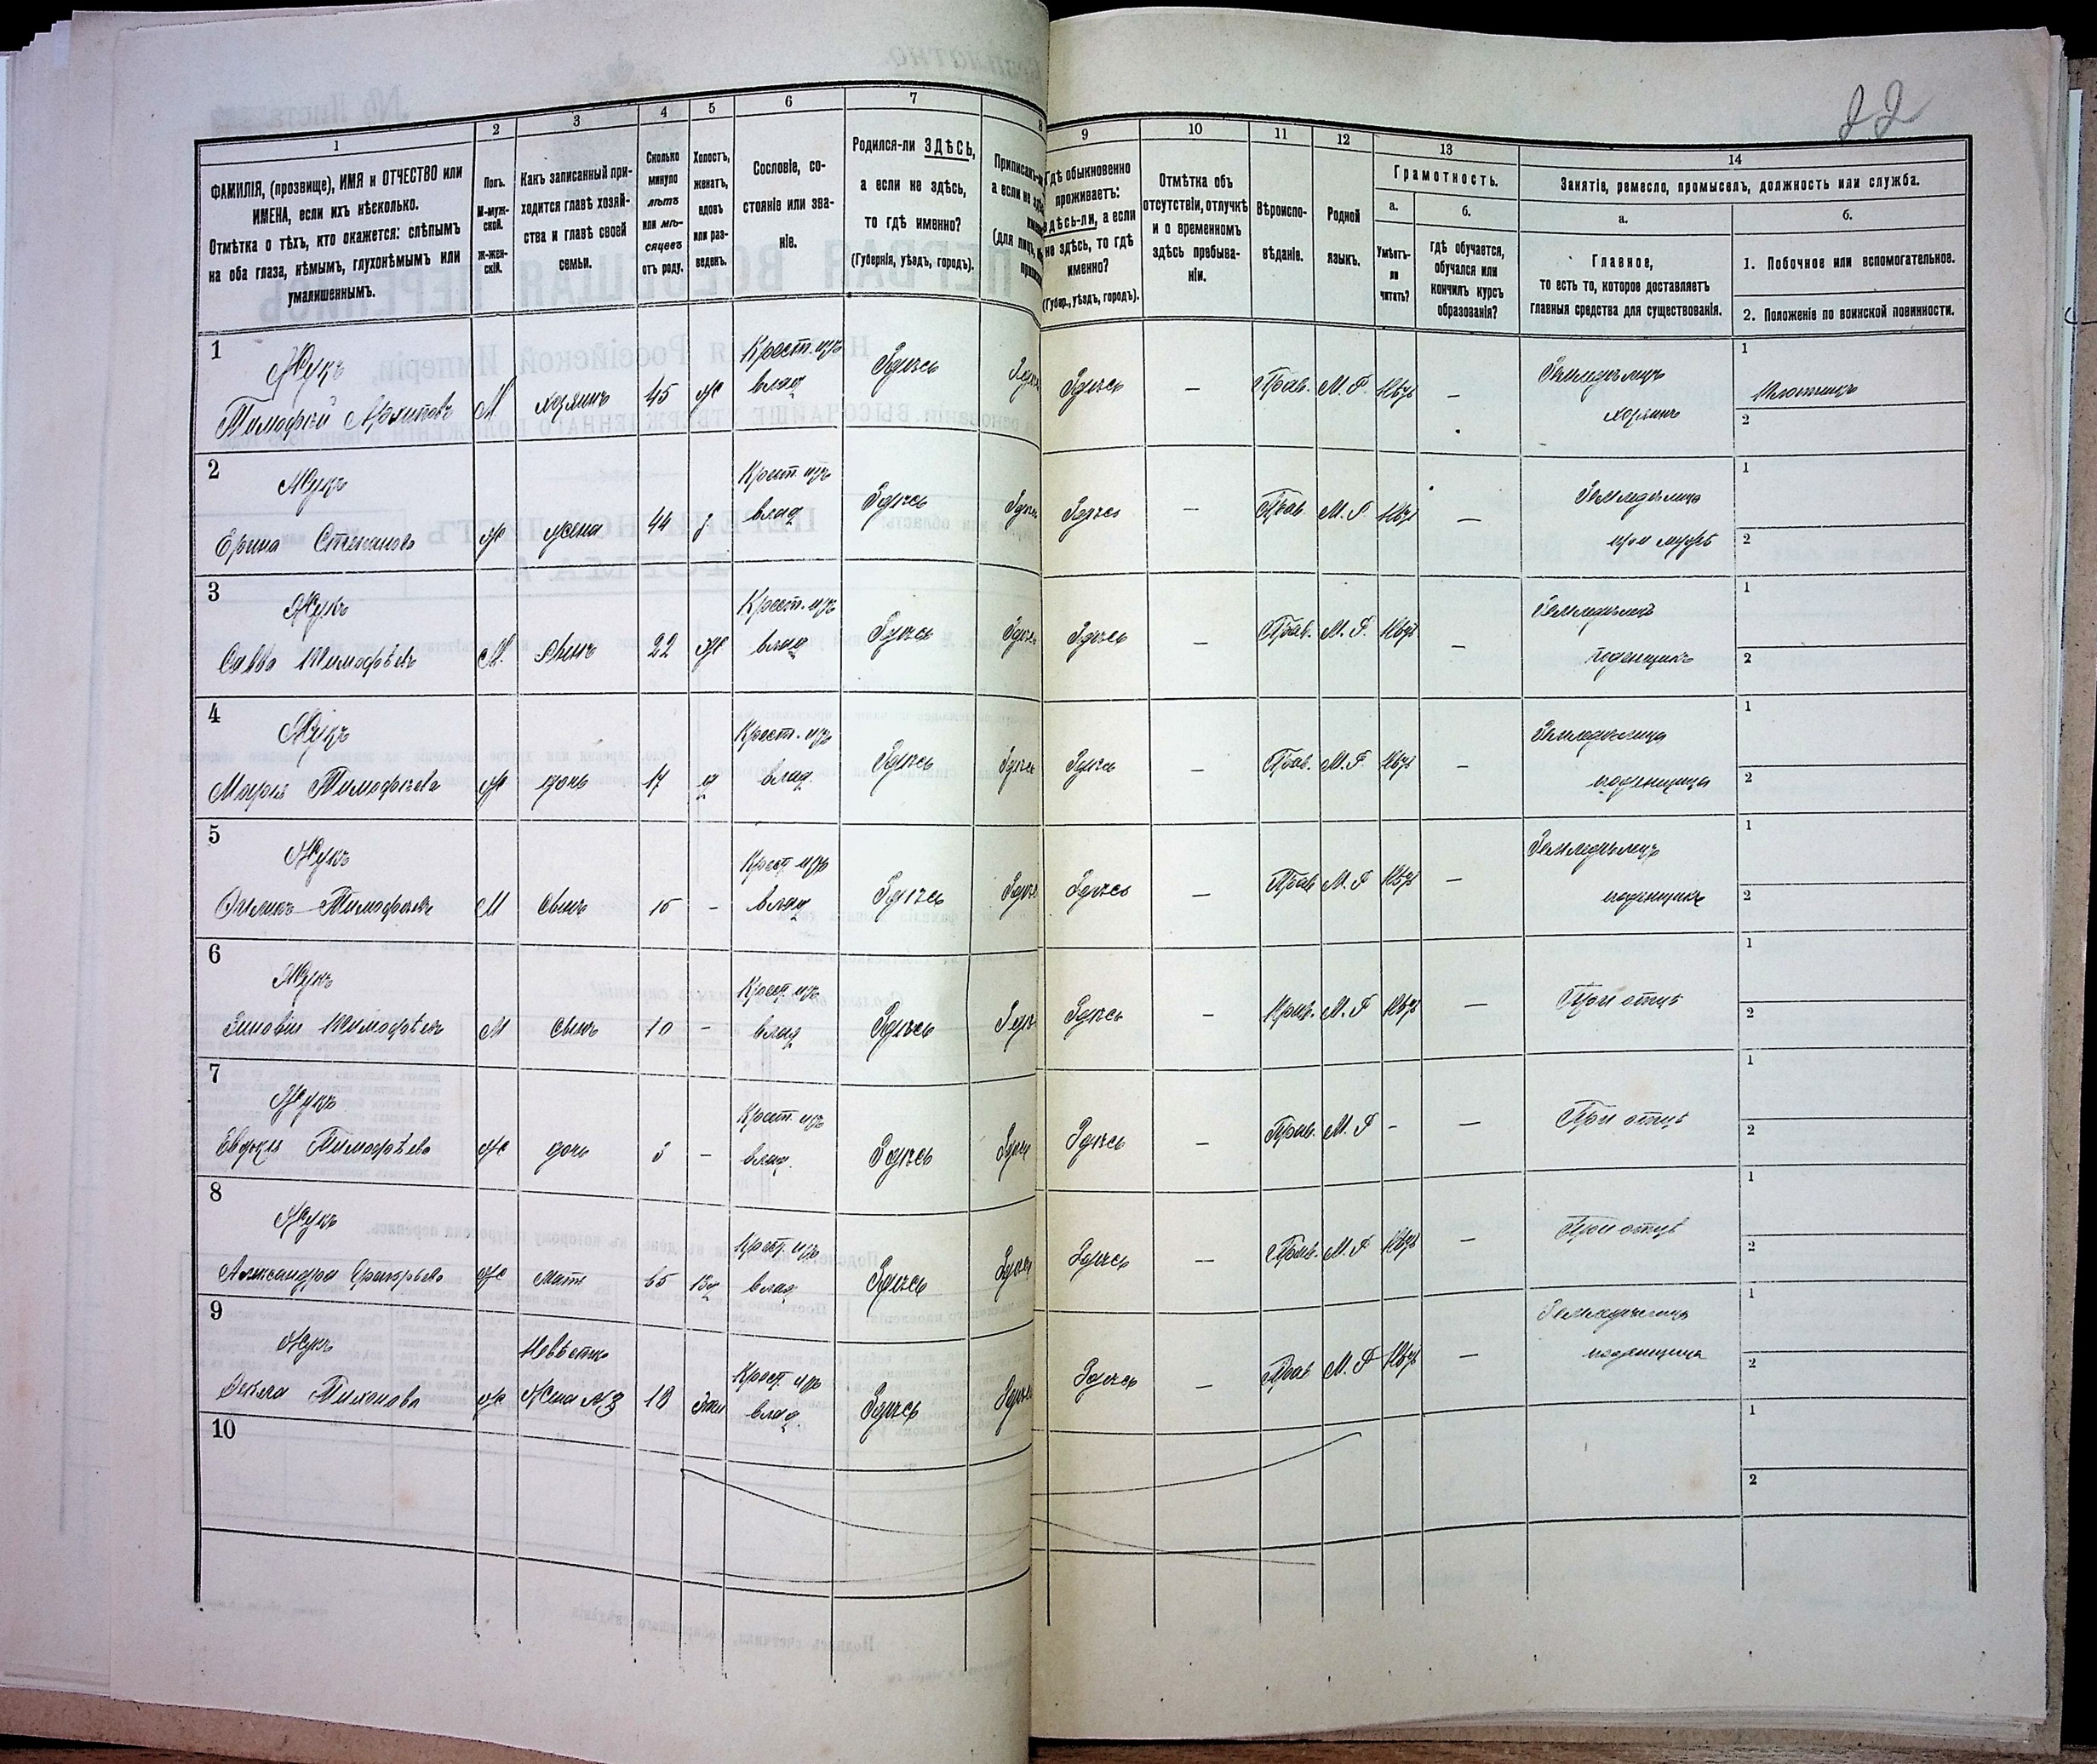 22
1
2
3
4
5
6
7
8
9
10
11
12
13
14
ФАМИЛІЯ, (прозвище), ИМЯ и ОТЧЕСТВО или
ИМЕНА, если ихъ нѣсколько.
Отмѣтка о тѣхъ, кто окажется: слѣпымъ
на оба глаза, нѣмымъ, глухонѣмымъ или
умалишеннымъ.
Полъ.
М-муж-
ской.
Ж-жен-
скій.
Какъ записанный при-
ходится главѣ хозяй-
ства и главѣ своей
семьи.
Сколько
минуло
лѣтъ
или мѣ-
сяцевъ
отъ роду.
Холостъ,
женатъ,
вдовъ
или раз-
веденъ.
Сословіе, со-
стояніе или зва-
ніе.
Родился-ли ЗДѢСЬ,
а если не здѣсь,
то гдѣ именно?
(Губернія, уѣздъ, городъ).
Гдѣ обыкновенно
проживаетъ:
здѣсь-ли, а если
не здѣсь, то гдѣ
именно?
(Губер., уѣздъ, городъ).
Отмѣтка объ
отсутствіи, отлучкѣ
и о временномъ
здѣсь пребыва-
ніи.
Вѣроиспо-
вѣданіе.
Родной
языкъ.
Грамотность.
а.
Умѣетъ-
ли
читать?
б.
гдѣ обучается,
обучался или
кончилъ курсъ
образованія?
Занятіе, ремесло, промыселъ, должность или служба.
а.
Главное,
то есть то, которое доставляетъ
главныя средства для существованія.
б.
1. Побочное или вспомогательное.
2. Положеніе по воинской повинности.
1
Жукъ
Тимофѣй Архиповъ
М
хозяинъ
45
ж
Крест. изъ
влад
Здѣсь
Здѣсь
—
Прав.
М. Р.
Нѣтъ
—
Земледѣлецъ
хозяинъ
1
Плотникъ
2
2
Жукъ
Ерина Степанова
ж
жена
44
Крест изъ
влад
Здѣсь
Здѣсь
—
Прав.
М. Р.
Нѣтъ
—
Земледѣлица
при мужѣ
1
2
3
Жукъ
Савва Тимофѣевъ
М.
сынъ
22
ж
Крест. изъ
влад
Здѣсь
Здѣсь
—
Прав.
М. Р.
Нѣтъ
—
Земледѣлецъ
поденщикъ
1
2
4
Жукъ
Марья Тимофѣева
ж
дочь
17
д
Крест. изъ
влад.
Здѣсь
Здѣсь
—
Прав.
М. Р.
Нѣтъ
—
Земледѣлица
поденщица
1
2
5
Жукъ
Тимофѣевъ
М
сынъ
15
-
Крест. изъ
влад
Здѣсь
Здѣсь
—
Прав
М. Р
Нѣтъ
—
Земледѣлецъ
поденщикъ
1
2
6
Жукъ
Зиновій Тимофѣевъ
М
сынъ
10
-
Крест. изъ
влад
Здѣсь
Здѣсь
—
Прав.
М. Р
Нѣтъ
—
При отцѣ
1
2
7
Жукъ
Тимофѣева
ж
дочь
3
-
Крест. изъ
влад.
Здѣсь
Здѣсь
—
Прав.
М. Р
-
—
При отцѣ
1
2
8
Жукъ
Александра Григорьева
ж
Мать
65
Вд
Крест. изъ
влад
Здѣсь
Здѣсь
—
Прав.
М. Р
Нѣтъ
—
При отцѣ
1
2
9
Жукъ
Текля Тихонова
ж
Невѣстка
Жена № 3
18
Зам
Крест изъ
влад.
Здѣсь
Здѣсь
—
Прав
М. Р
Нѣтъ
—
Земледѣлица
поденщица
1
2
10
1
2